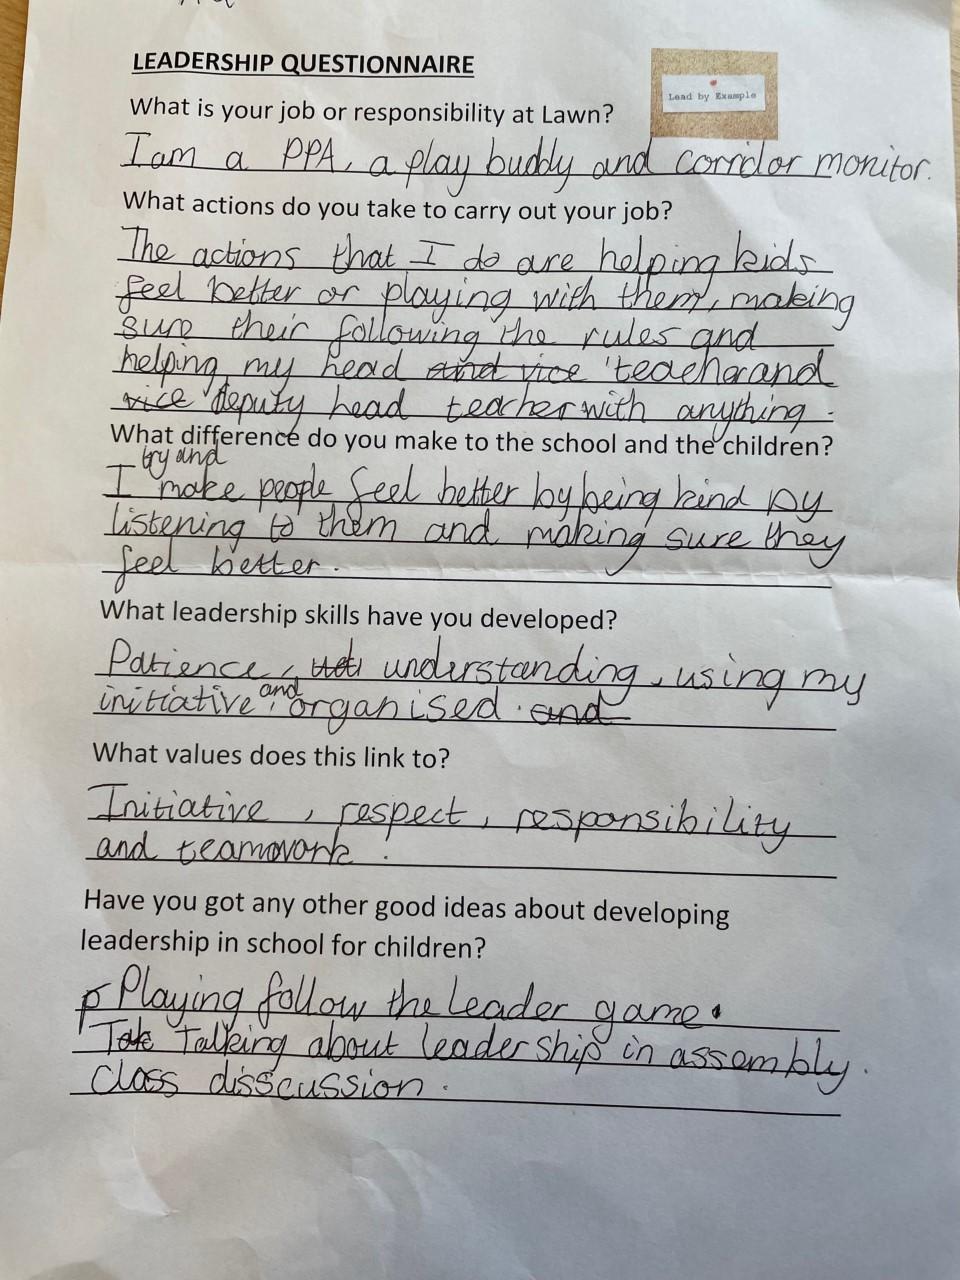 LEADERSHIP QUESTIONNAIRE
Lead by Example
What is your job or responsibility at Lawn?
I am a PPA, a play buddy and corridor monitor.
What actions do you take to carry out your job?
The actions that I do are helping kids
feel better or playing with them, making
sure their following the rules and
helping my head and vice teacher and
vice deputy head teacher with anything.
What difference do you make to the school and the children?
I try and make people feel better by being kind by
listening to them and making sure they
feel better.
What leadership skills have you developed?
Patience, understanding, using my
initiative, and organised. and
What values does this link to?
Initiative, respect, responsibility
and teamwork.
Have you got any other good ideas about developing
leadership in school for children?
p Playing follow the leader game.
Talking about leadership in assembly.
Class disscussion.